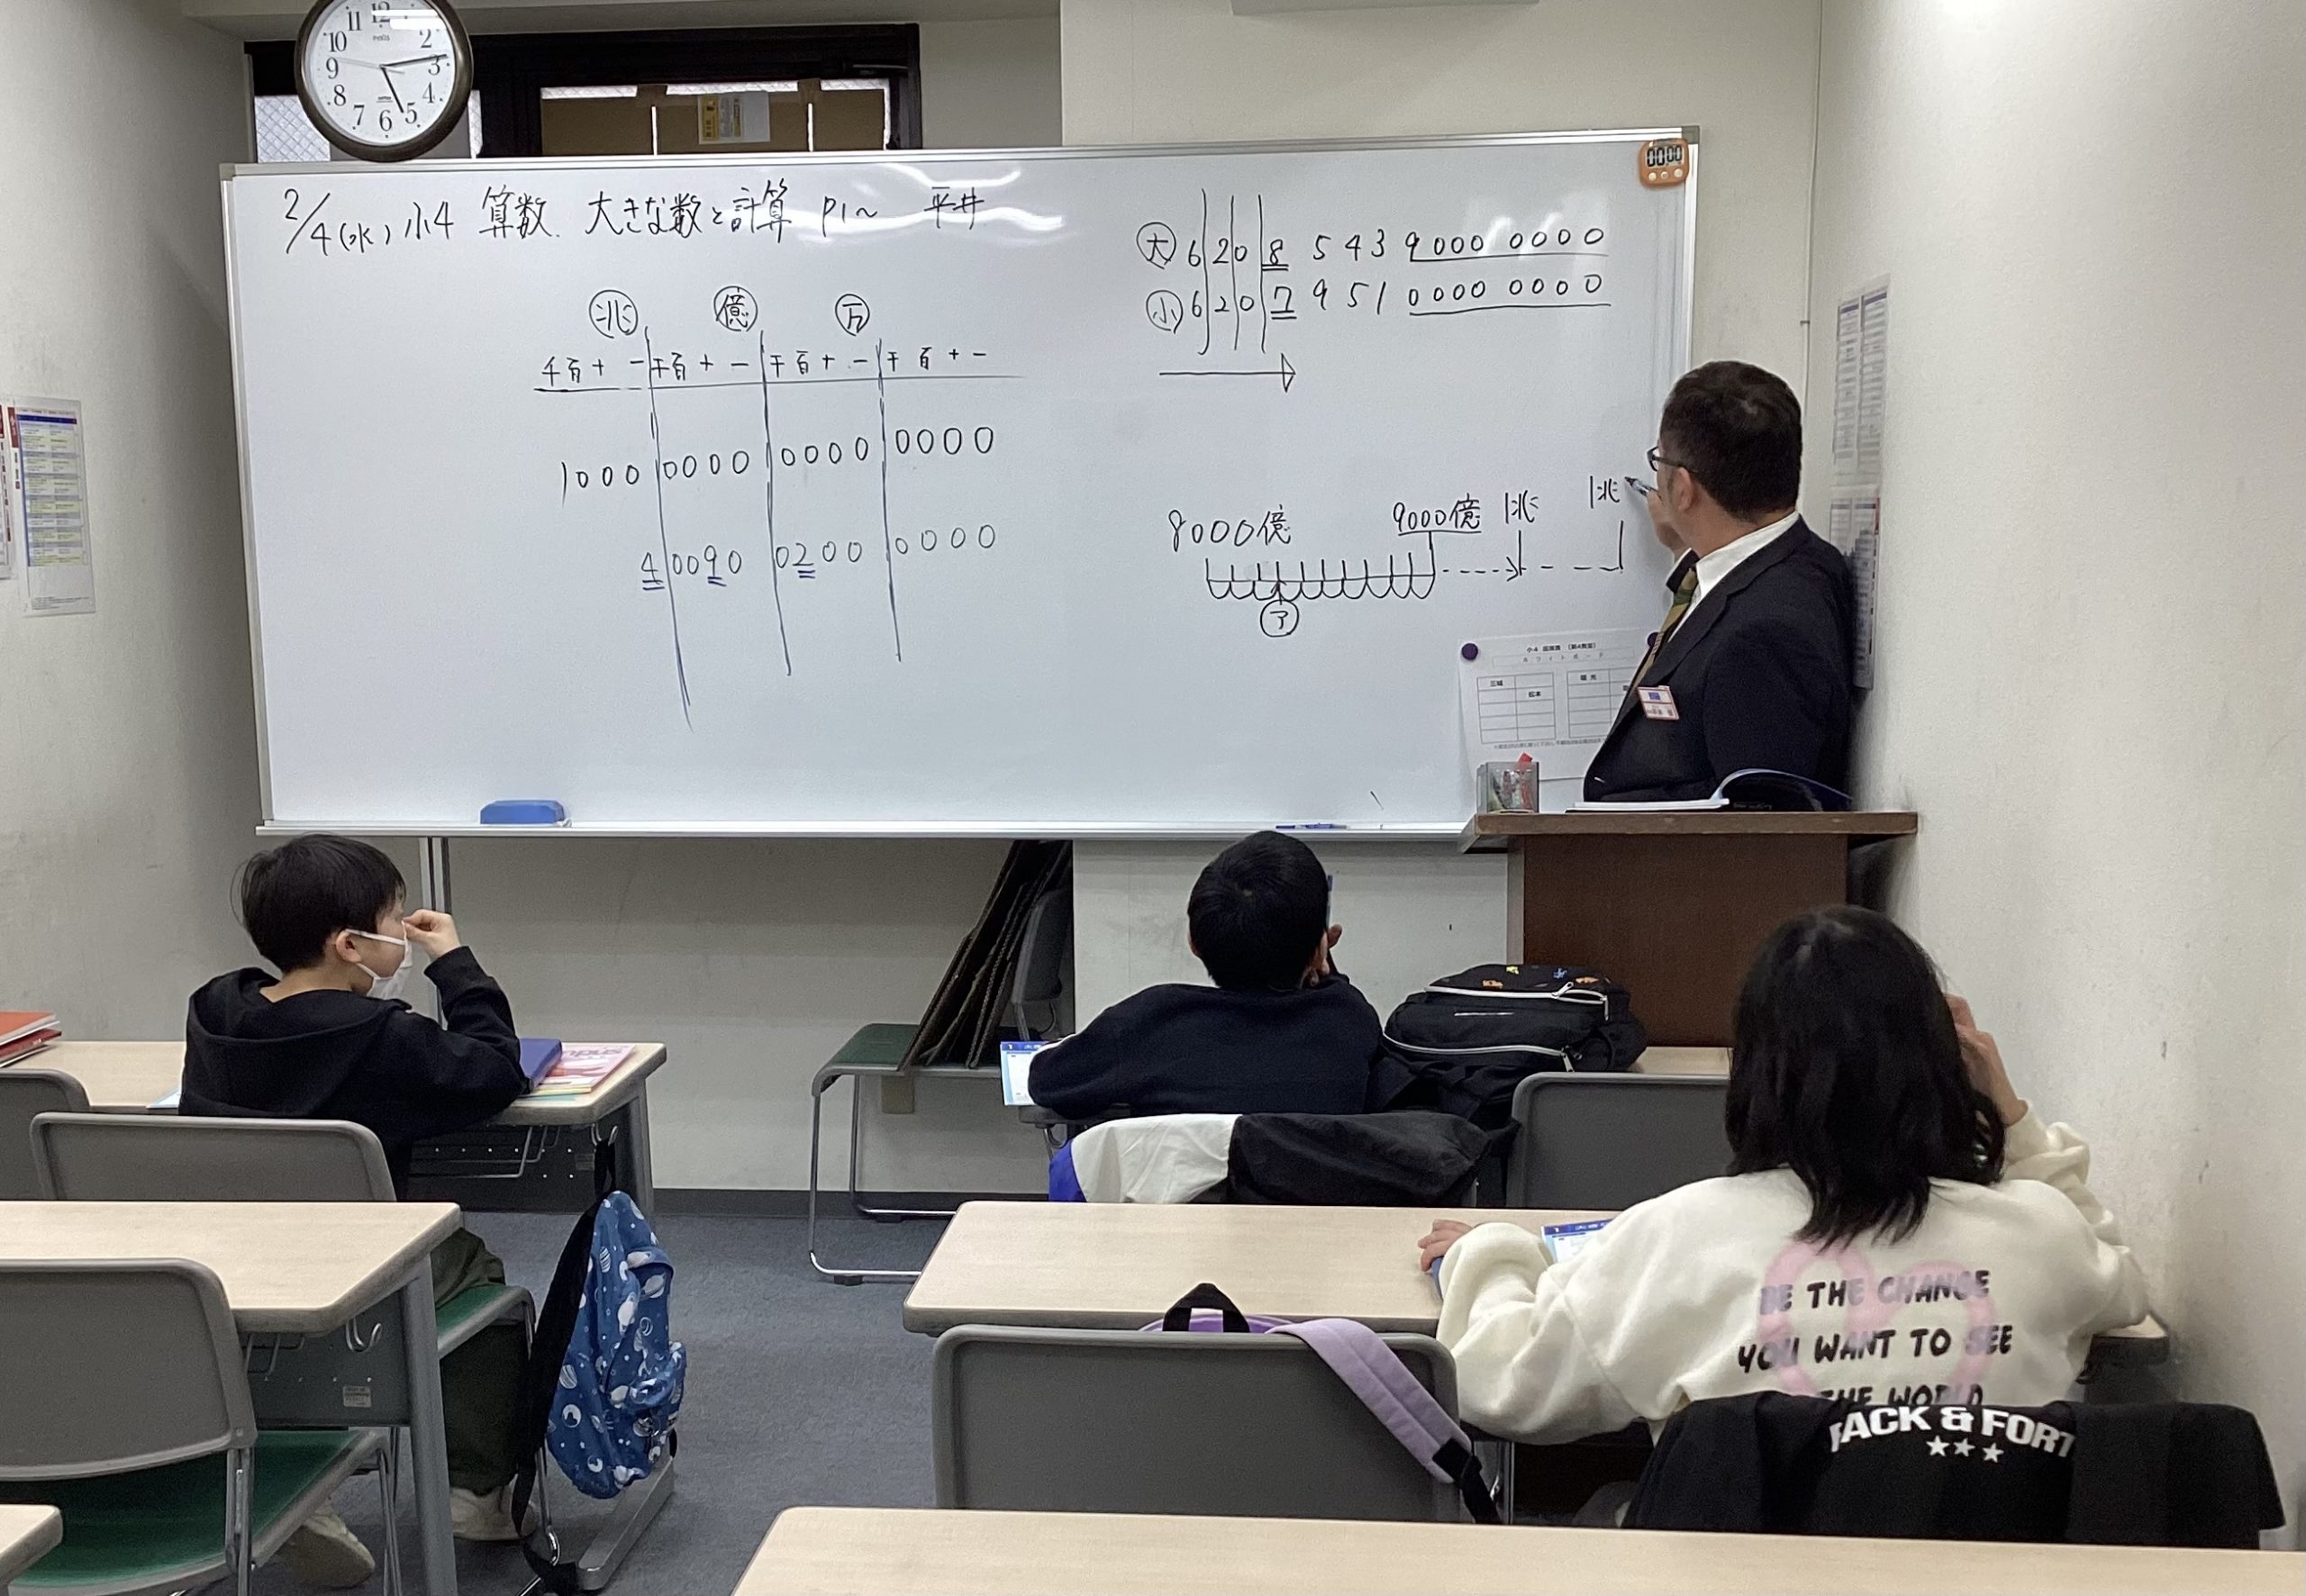 11 12 2 3 4 5 6 7 8 9 10
2/4(水) 小4 算数 大きな数と計算 P1~ 平井
00:00
兆 億 万
千百十一千百十一千百十一千百十一
1000 0000 0000 0000
4 0090 0200 0000
大 6208 543 9000 0000
小 6207 951 0000 0000
8000億 9000億 1兆 1兆
ア
ホワイトボード
BE THE CHANGE
YOU WANT TO SEE
THE WORLD
★★★